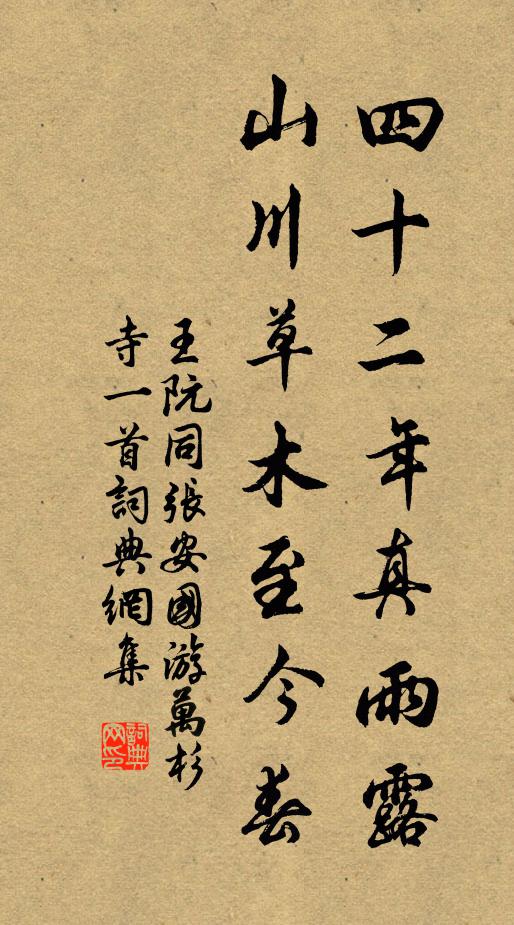 四十二年真雨露
山川草木至今春
王阮同張安國游萬杉
寺一首詞典網集
詞典
网印